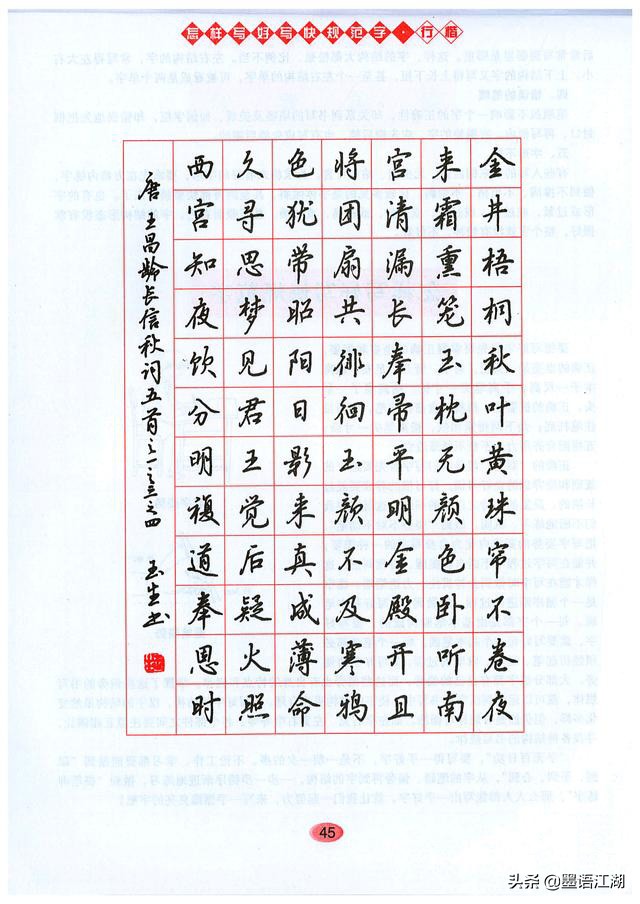 怎样写好写快规范字·行楷
金井梧桐秋叶黄珠帘不卷夜
来霜熏笼玉枕无颜色卧听南
宫清漏长奉帚平明金殿开且
将团扇共徘徊玉颜不及寒鸦
色犹带昭阳日影来真成薄命
久寻思梦见君王觉后疑火照
西宫知夜饮分明複道奉恩时
唐王昌龄长信秋词五首之一之三之四 玉生书
45
头条 @墨语江湖